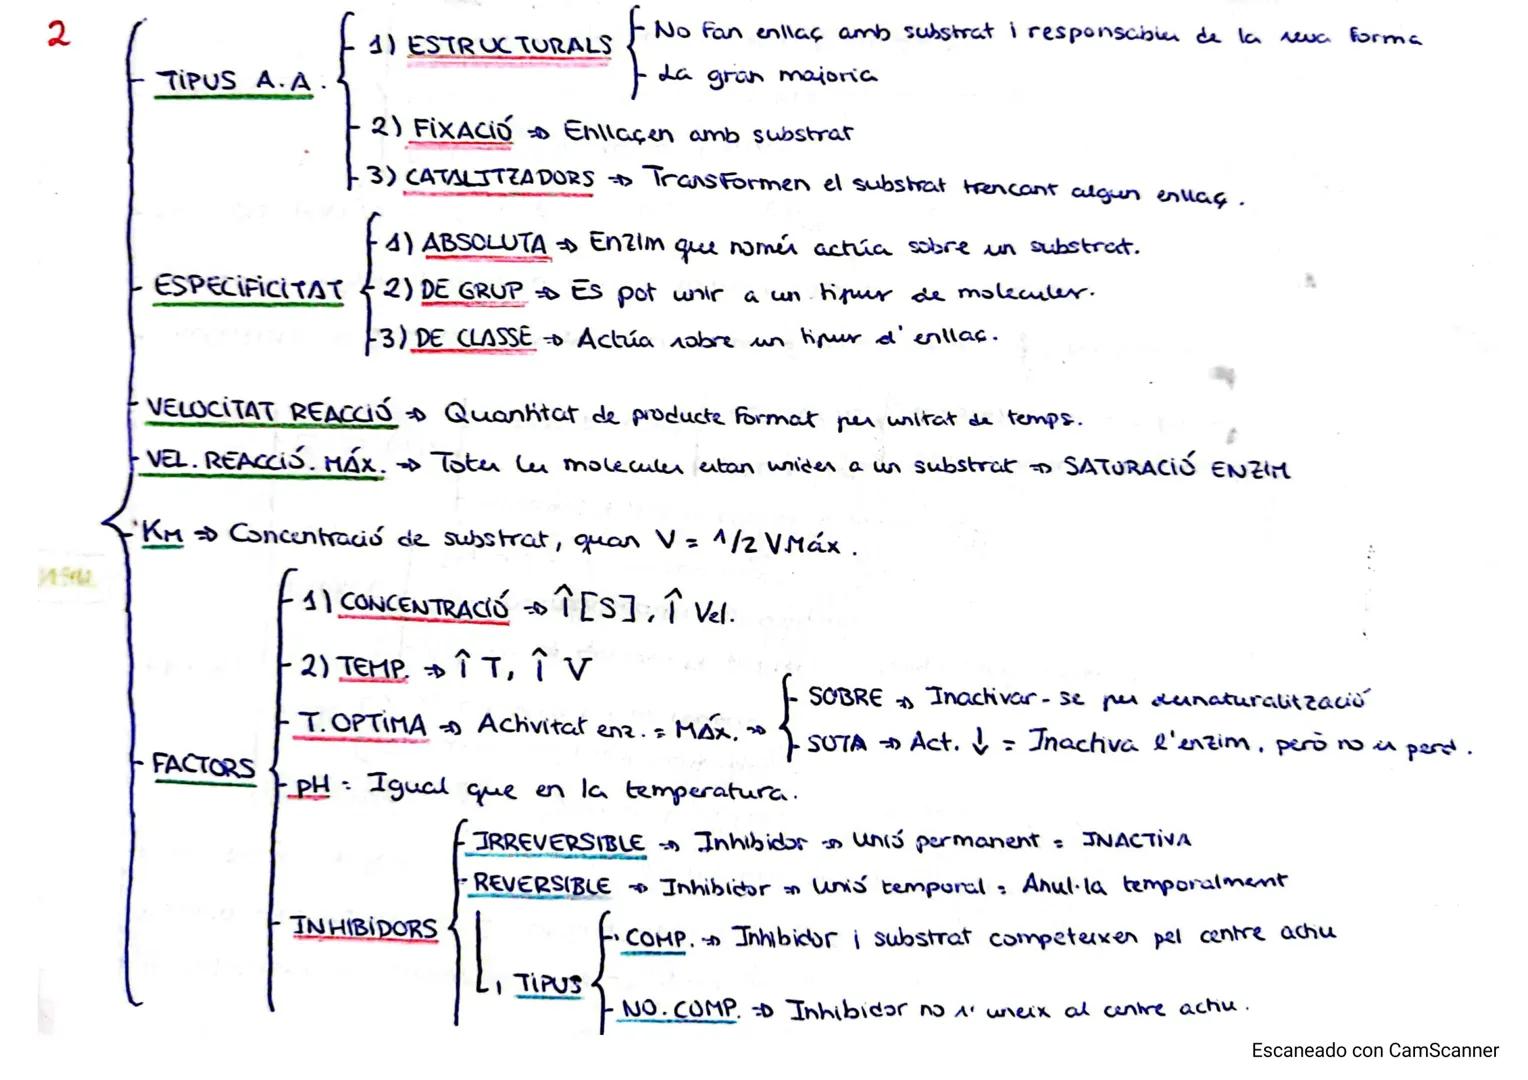 2
TIPUS A.A.
1) ESTRUCTURALS
- No fan enllaç amb substrat i responsables de la seva forma
- La gran majoria
2) FIXACIÓ => Enllaçen amb substrat
3) CATALITZADORS => Transformen el substrat trencant algun enllaç.
ESPECIFICITAT
1) ABSOLUTA => Enzim que només actúa sobre un substrat.
2) DE GRUP => Es pot unir a un tipus de molecules.
3) DE CLASSE => Actúa sobre un tipus d'enllaç.
VELOCITAT REACCIÓ => Quantitat de producte format per unitat de temps.
VEL. REACCIÓ. MÁX. => Totes les molecules estan unides a un substrat => SATURACIÓ ENZIM
KM => Concentració de substrat, quan V = 1/2 VMáx.
FACTORS
1) CONCENTRACIÓ => ↑[S], ↑ Vel.
2) TEMP. => ↑ T, ↑ V
- T. OPTIMA => Activitat enz. = MÁX. =>
- SOBRE => Inactivar-se per desnaturalització
- SOTA => Act. ↓ = Inactiva l'enzim, però no es perd.
- pH = Igual que en la temperatura.
- INHIBIDORS
- IRREVERSIBLE => Inhibidor => Unió permanent = INACTIVA
- REVERSIBLE => Inhibidor => Unió temporal = Anul·la temporalment
TIPUS
- COMP. => Inhibidor i substrat competeixen pel centre actiu
- NO. COMP. => Inhibidor no s'uneix al centre actiu.
Escaneado con CamScanner